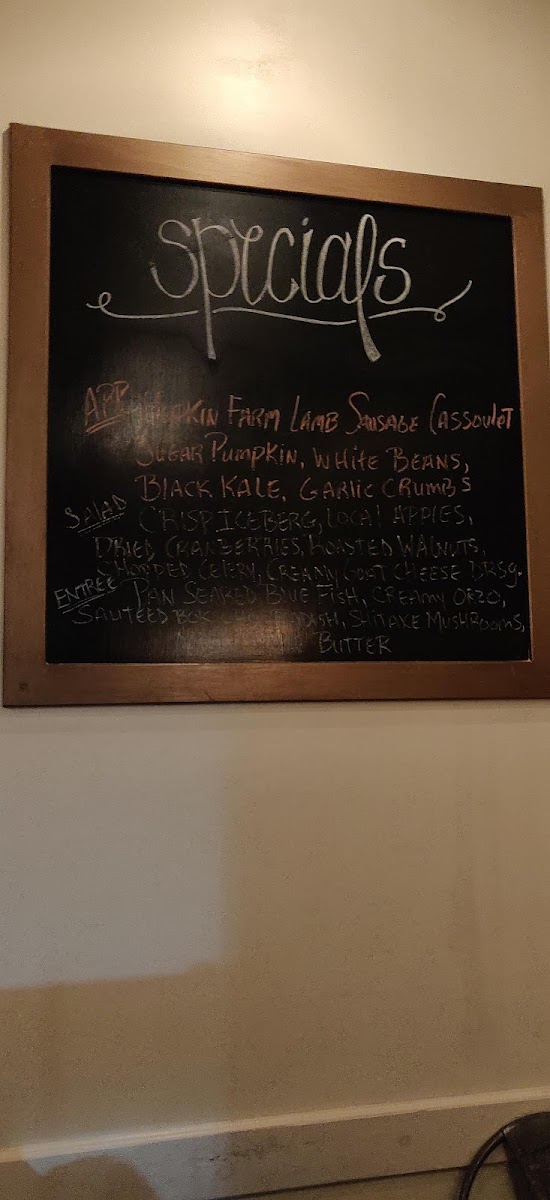 Specials
APP. FARM LAMB SAUSAGE CASSOULET
SUGAR PUMPKIN, WHITE BEANS,
BLACK KALE, GARLIC CRUMBS
SALAD CRISP ICEBERG, LOCAL APPLES,
DRIED CRANBERRIES, ROASTED WALNUTS,
CHOPPED CELERY, CREAMY GOAT CHEESE DRSG.
ENTREE PAN SEARED BLUE FISH, CREAMY ORZO,
SAUTEED BOK SHITAKE MUSHROOMS,
BUTTER